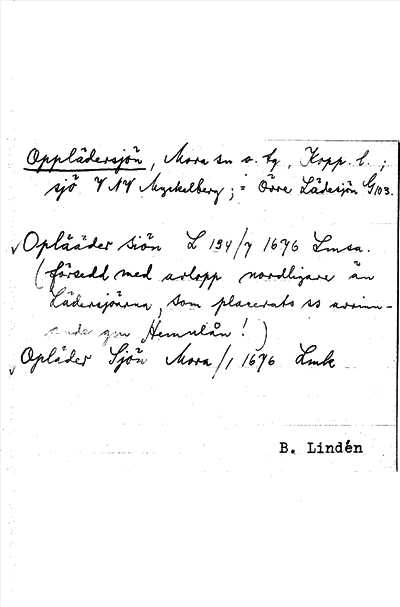 Opplädersjön, Mora sn o. tg, Kopp. l.;
sjö VNV Myckelberg; = Övre Lädesjön G103.
√Oplääder siön L 134/7 1676 Lmsa.
(försedd med avlopp nordligare än
Lädersjöarna, som placerats ss avrinn-
ande gm Hemulån!)
√Opläder Sjön Mora/1 1676 Lmk
B. Lindén